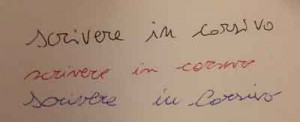 scrivere in corsivo
scrivere in corsivo
scrivere in Corsivo